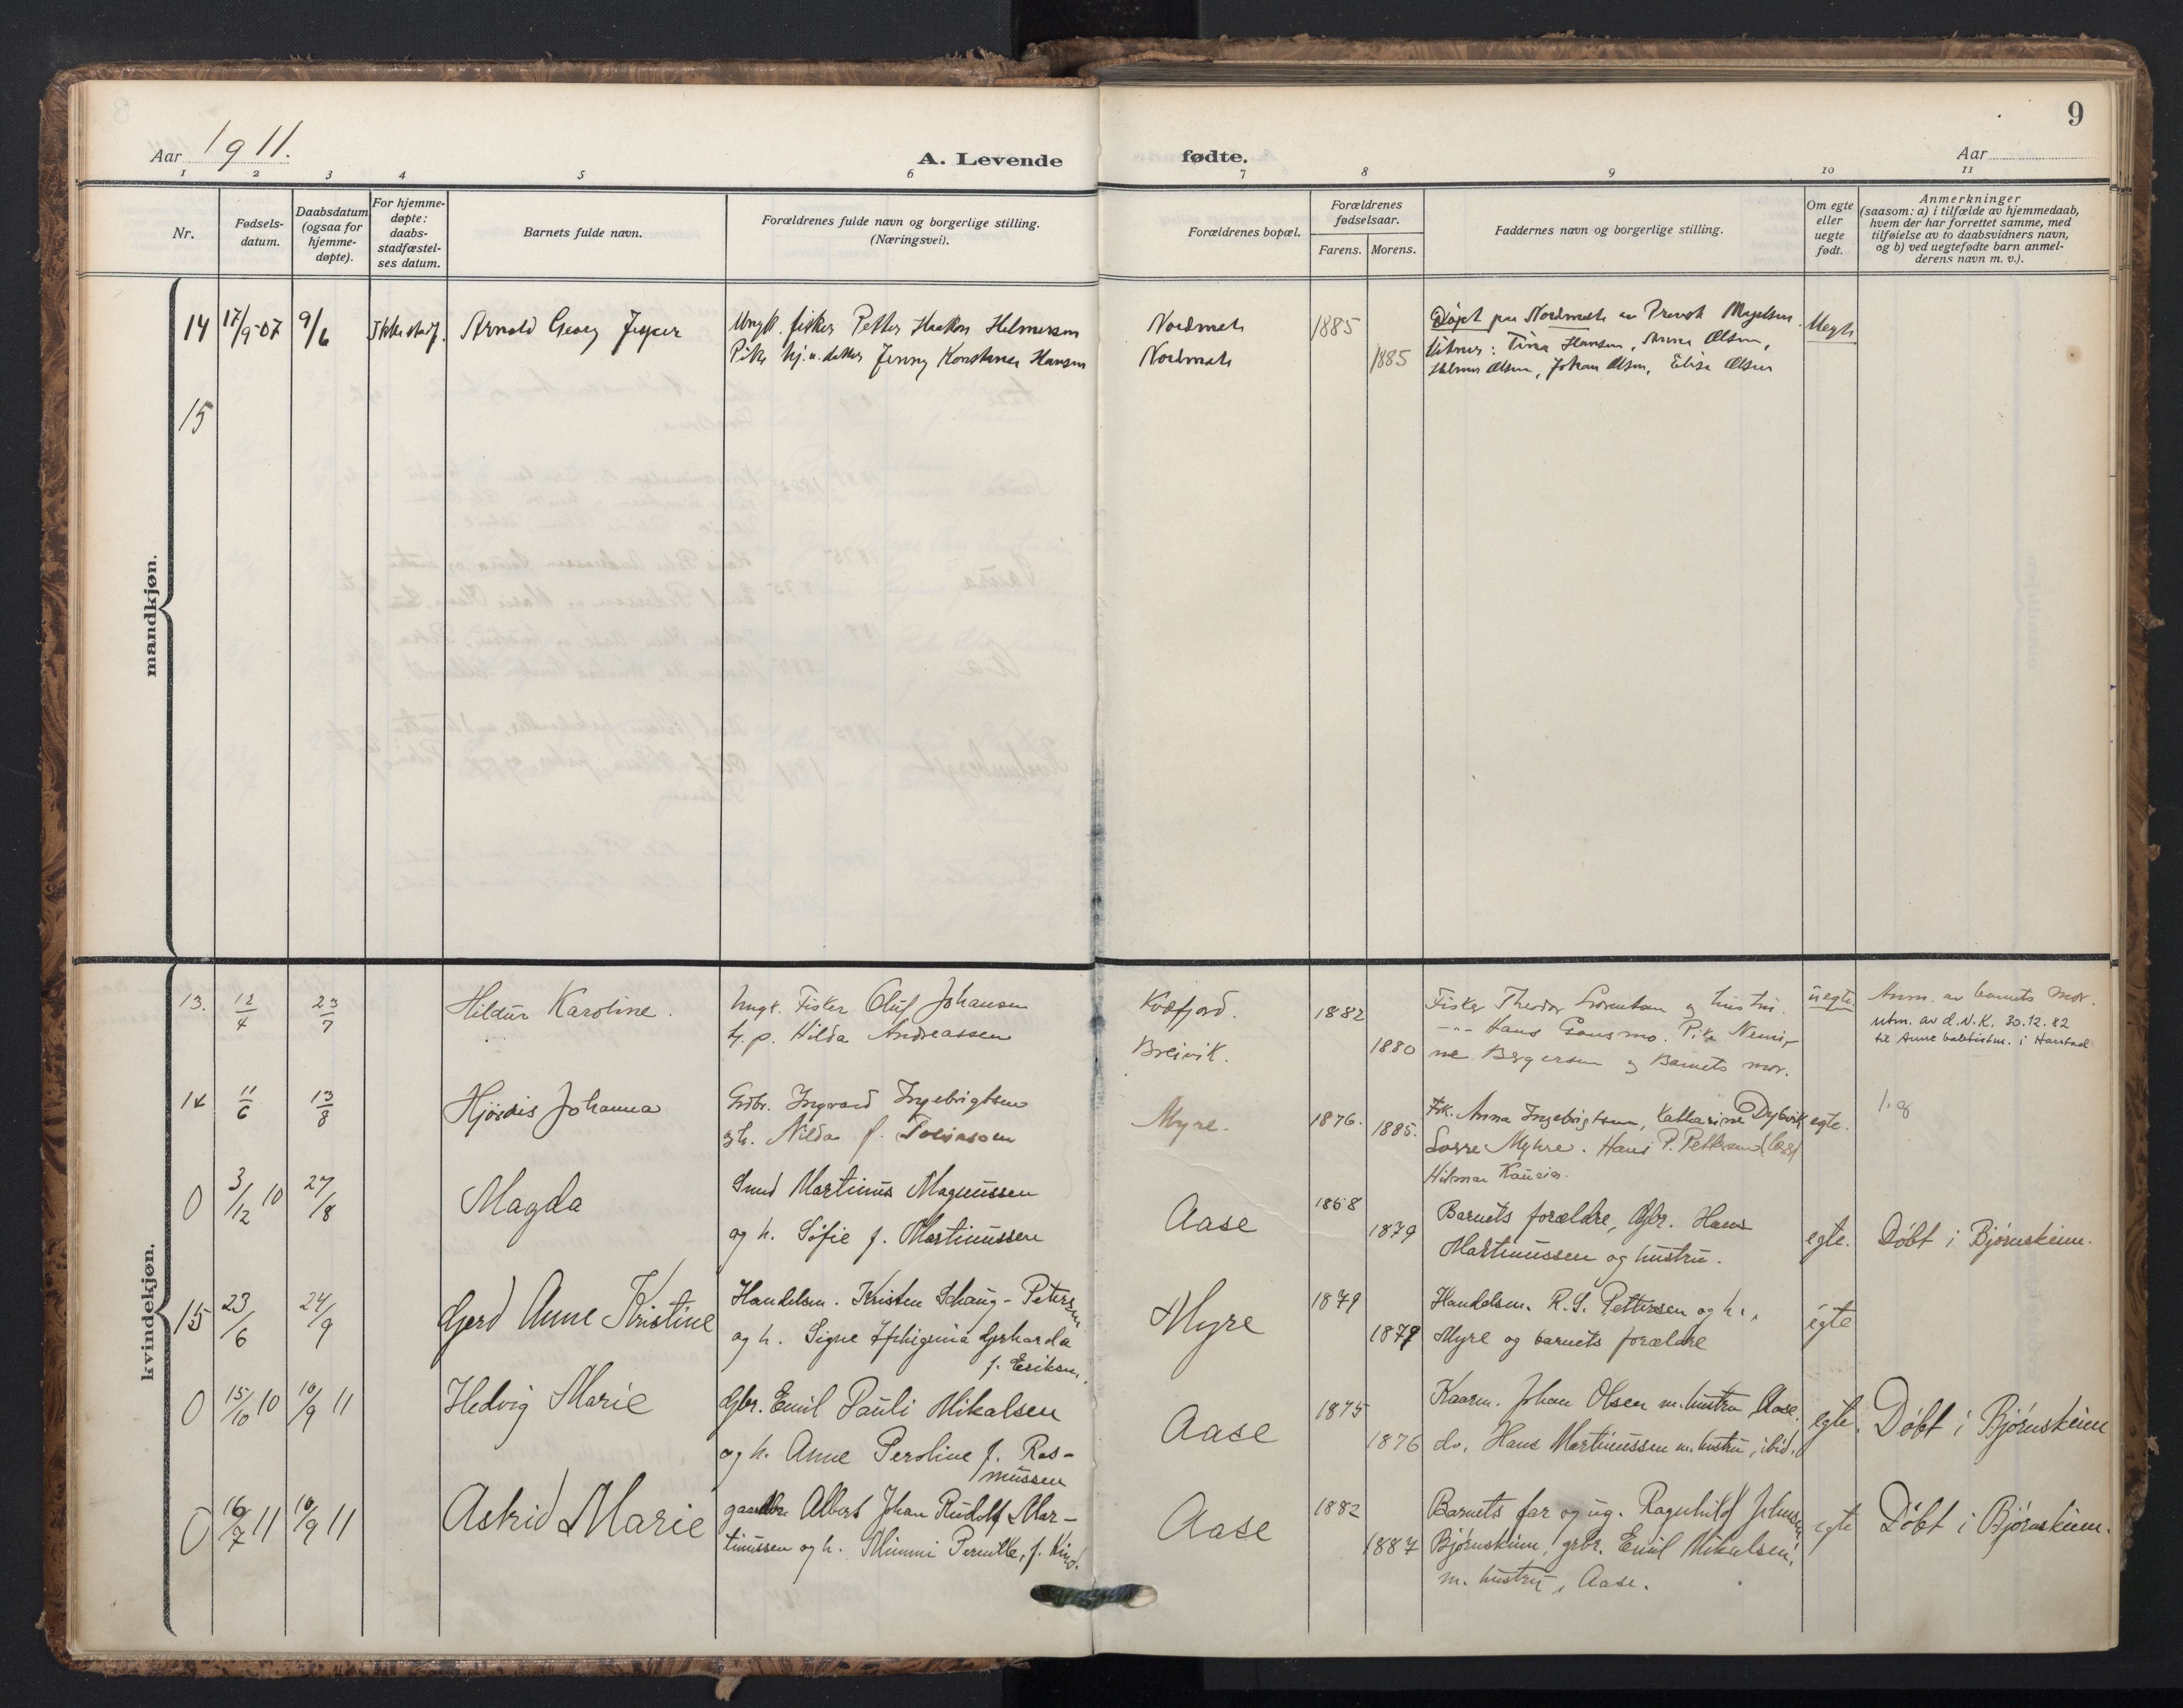 Aar 1911.
A. Levende
fødte.
Aar
9
1 2 3 4 5 6 7 8 9 10 11
Nr.
Fødsels-
datum.
Daabsdatum
(ogsaa for
hjemme-
døpte).
For hjemme-
døpte:
daabs-
stadfæstel-
ses datum.
Barnets fulde navn.
Forældrenes fulde navn og borgerlige stilling.
(Næringsvei).
Forældrenes bopæl.
Forældrenes
fødselsaar.
Farens. Morens.
Faddernes navn og borgerlige stilling.
Om egte
eller
uegte
født.
Anmerkninger
(saasom: a) i tilfælde av hjemmedaab,
hvem der har forrettet samme, med
tilføielse av to daabsvidners navn,
og b) ved uegtefødte barn anmel-
derens navn m. v.).
mandkjøn.
14 17/9-07 9/6 Ikke stadf. Arnold Georg
Ungk. fisker Petter Haakon Helmersen
Pike hj.v. datter Jenny Konstanse Hansen
Nordmela
Nordmela
1885
1885
Døpt paa Nordmela av Provst
Vitner: Tina Hansen, Anna Olsen,
Helmer Olsen, Johan Olsen, Elise Olsen
Uegte
15
kvindekjøn.
13. 12/4 23/7 Hildur Karoline.
Ungk. Fisker Oluf Johansen
t.p. Hilda Andreassen
Kvæfjord.
Breivik.
1882
1880
Fisker Theodor Lorentsen og hustru.
-"- Hans Gausmo. Pike Nemi-
ne Bergersen og Barnets mor.
uegte.
Anm. av barnets mor.
utm. av d.N.K. 30.12.82
til Anne baptistm. i Harstad
14 11/6 13/8 Hjørdis Johanna
Grdbr. Ingvard Ingebrigtsen
og h. Nilda f. Tobiassen
Myre.
1876.
1885.
Frk. Anna Ingebrigtsen, Katharine Dybvik
Lorre Myhre. Hans P. Pettersen
Hilmar
egte.
0 3/12 10 27/8 Magda
Inud Martinus Magnussen
og h. Sofie f. Martinussen
Aase
1868
1879
Barnets forældre, Gbr. Hans
Martinussen og hustru.
egte.
Døbt i Bjørnskinn.
15 23/6 24/9 Gjerd Anne Kristine
Handelsm. Kristen Schaug-Petersen
og h. Signe Ifhigenia Gerharda
f. Eriksen.
Myre
1879
1879
Handelsm. R. S. Pettersen og h.,
Myre og barnets forældre
egte
0 15/10 10 10/9 11 Hedvig Marie
Gbr. Emil Pauli Mikalsen
og h. Anne Peroline f. Ras-
mussen
Aase
1875
1876
Kaarm. Johan Olsen m. hustru Aase.
do. Hans Martinussen m. hustru, ibid.
egte.
Døbt i Bjørnskinn
0 16/7 11 10/9 11 Astrid Marie
gaardbr. Albert Johan Rudolf Mar-
tinussen og h. Mimmi Pernille, f. Kind.
Aase
1882
1887
Barnets far og ug. Ragnhild Johnsen
Bjørnskinn, grbr. Emil Mikalsen,
m. hustru, Aase.
egte
Døbt i Bjørnskinn.